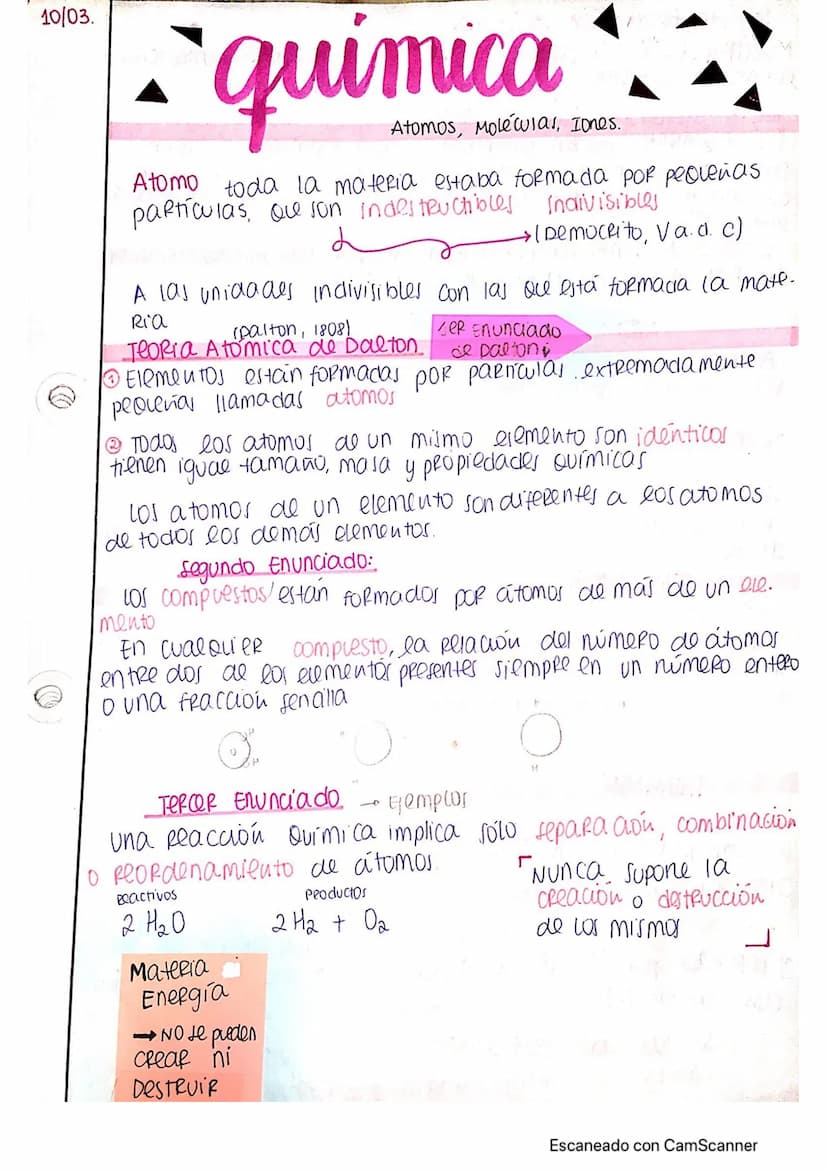 10/03.
química
Atomos, Moléculas, Iones.
Atomo toda la materia estaba formada por pequeñas
partículas, que son indestructibles indivisibles
(Democrito, V a.d. C)
A las unidades indivisibles con las que está formada la mate-
Ria
(Dalton, 1808)
Teoria Atómica de Dalton
1er Enunciado
de Dalton:
① Elementos están formadas por particulas extremadamente
pequeñas llamadas atomos
② Todos los atomos de un mismo elemento son idénticos
tienen igual tamaño, masa y propiedades químicas
Los atomos de un elemento son diferentes a los atomos
de todos los demás elementos.
Segundo Enunciado:
Los compuestos están formados por átomos de más de un ele-
mento
En cualquier compuesto, la relación del número de átomos
entre dos de los elementos presentes siempre en un número entero
o una fracción sencilla
H
TERCER Enunciado → Ejemplos
una reacción química implica sólo separación, combinación
o reordenamiento de átomos.
Nunca supone la
creación o destrucción
de los mismos
Reactivos
Productos
2 H₂O
2 H₂ + O₂
Materia
Energía
→ NO se pueden
crear ni
Destruir
Escaneado con CamScanner